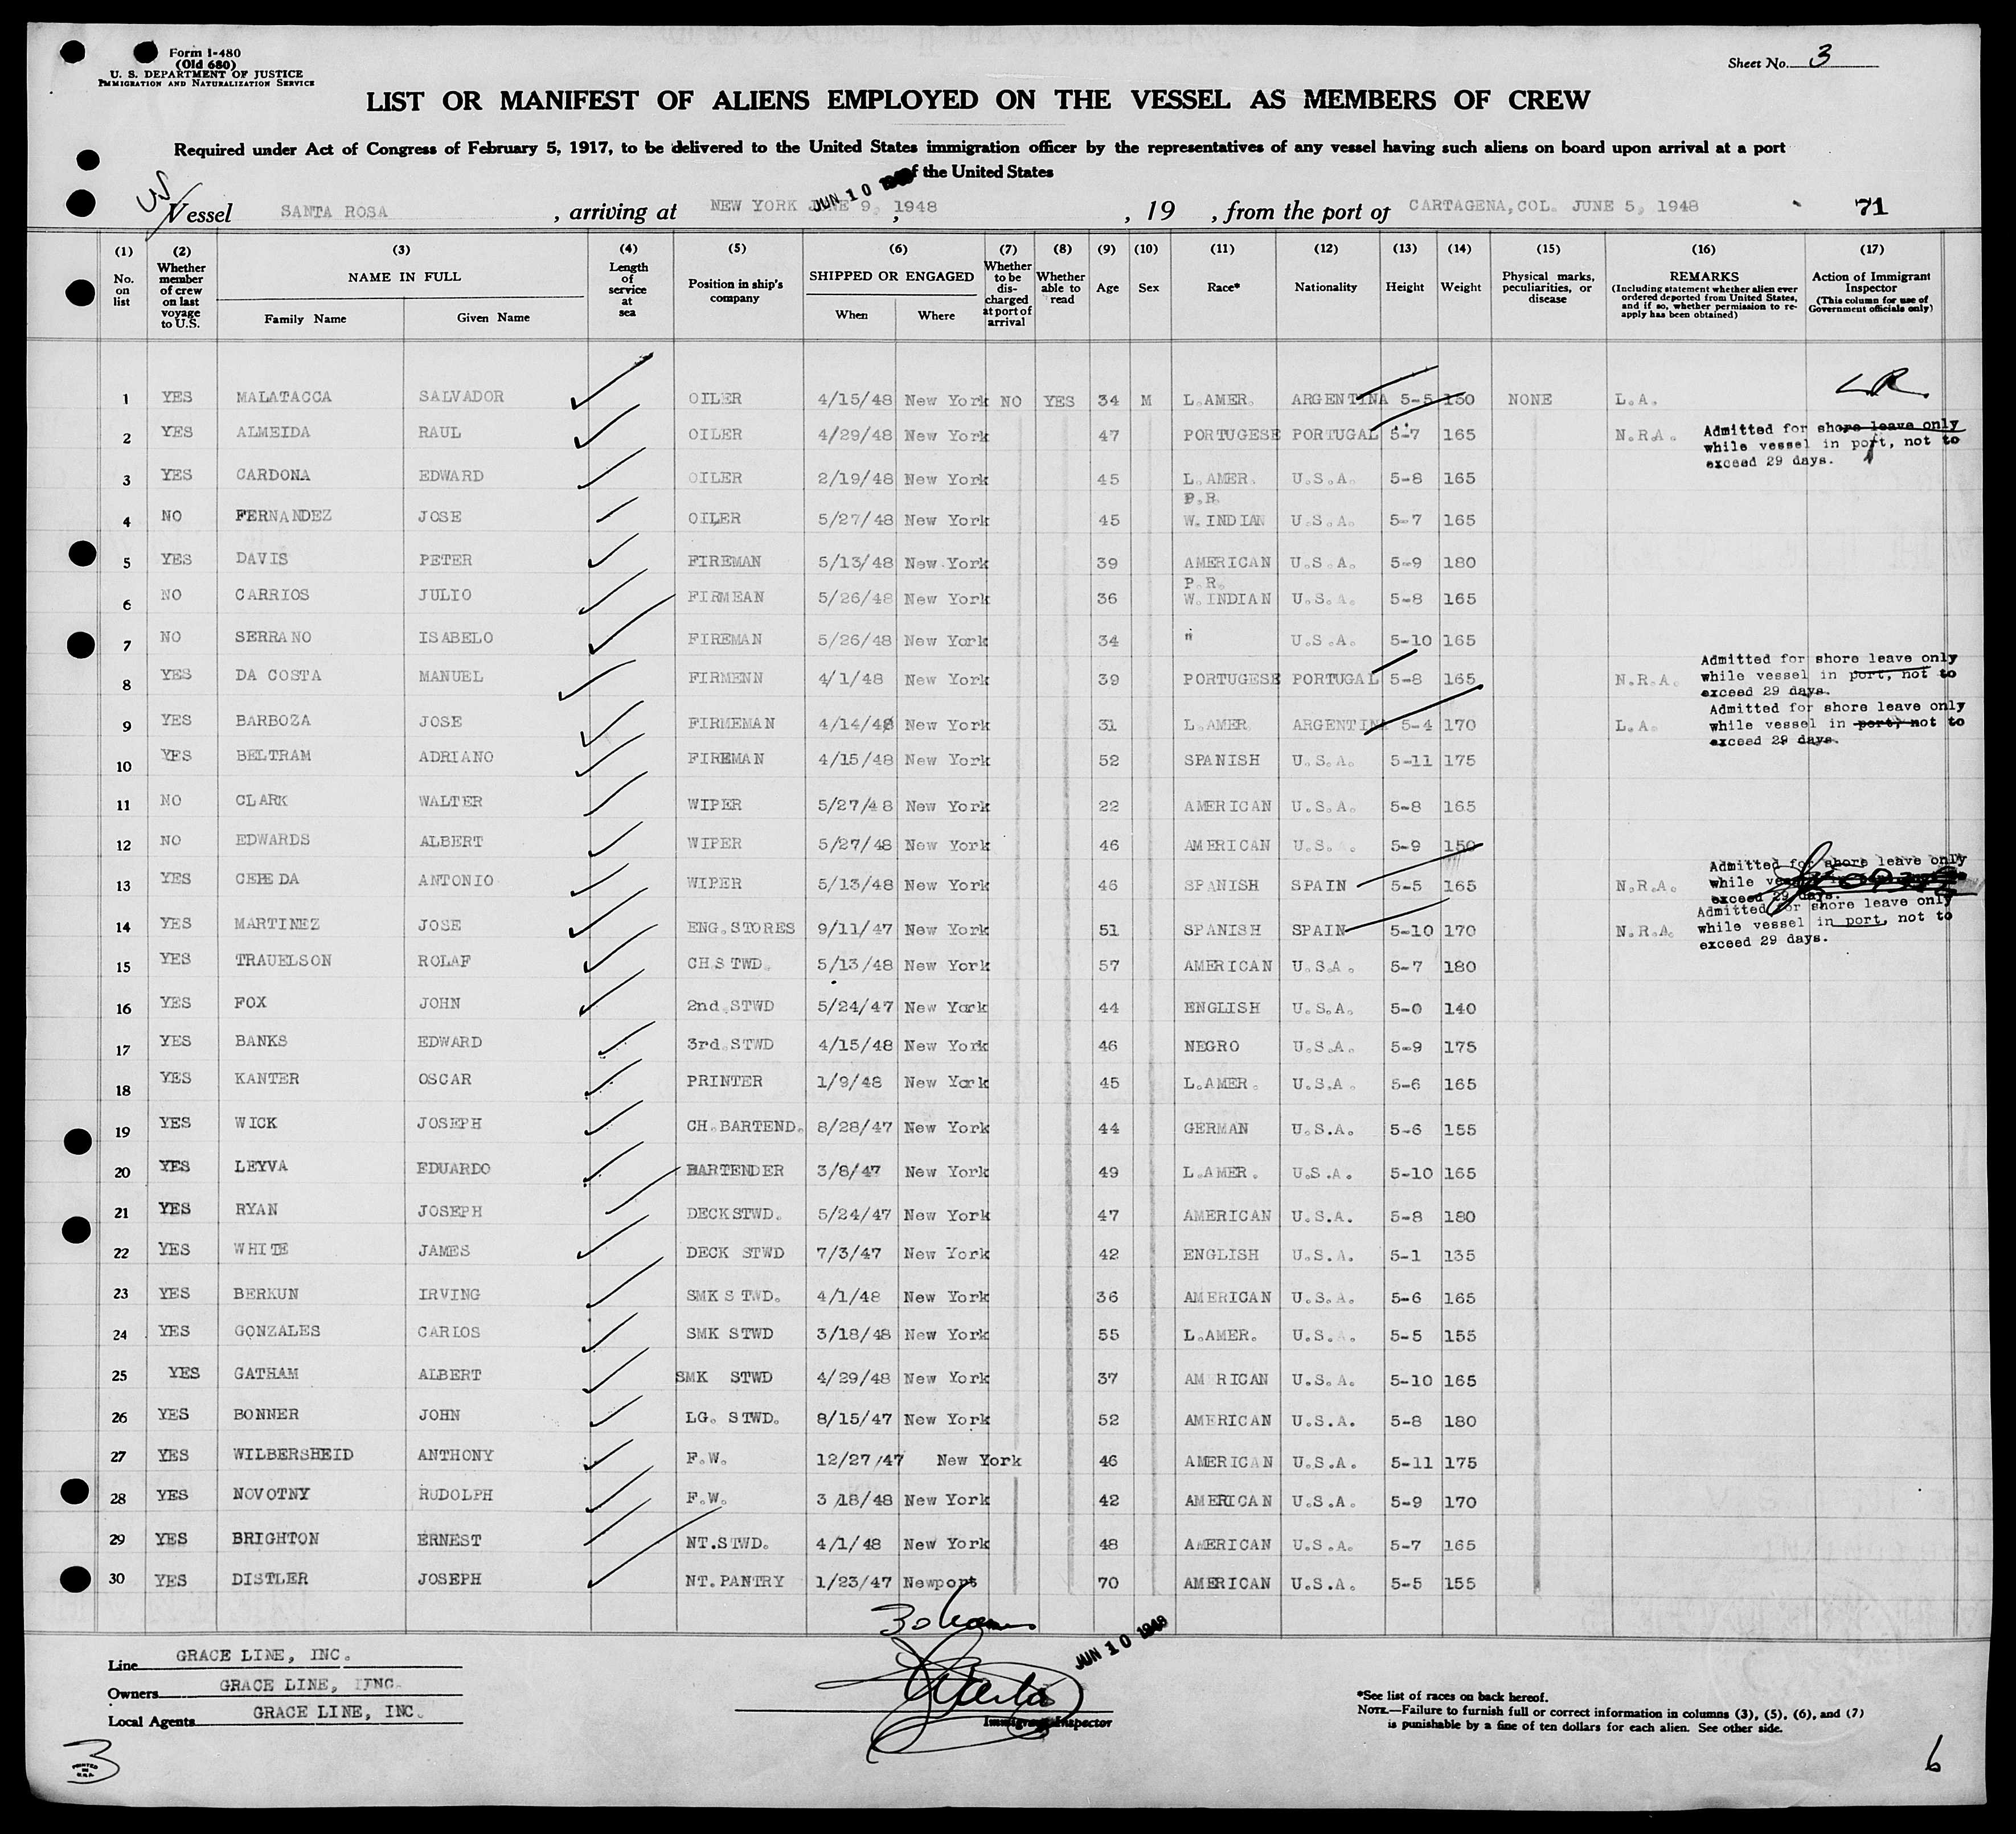 Form I-480
(Old 680)
U. S. DEPARTMENT OF JUSTICE
IMMIGRATION AND NATURALIZATION SERVICE
Sheet No. 3
LIST OR MANIFEST OF ALIENS EMPLOYED ON THE VESSEL AS MEMBERS OF CREW
Required under Act of Congress of February 5, 1917, to be delivered to the United States immigration officer by the representatives of any vessel having such aliens on board upon arrival at a port
of the United States
US
JUN 10 1948
Vessel SANTA ROSA , arriving at NEW YORK JUNE 9, 1948 , 19 , from the port of CARTAGENA,COL. JUNE 5, 1948 71
(1) (2) (3) (4) (5) (6) (7) (8) (9) (10) (11) (12) (13) (14) (15) (16) (17)
No. on list
Whether member of crew on last voyage to U.S.
NAME IN FULL
Family Name Given Name
Length of service at sea
Position in ship's company
SHIPPED OR ENGAGED
When Where
Whether to be discharged at port of arrival
Whether able to read
Age
Sex
Race*
Nationality
Height
Weight
Physical marks, peculiarities, or disease
REMARKS
(Including statement whether alien ever ordered deported from United States, and if so, whether permission to re-apply has been obtained)
Action of Immigrant Inspector
(This column for use of Government officials only)
1 YES MALATACCA SALVADOR OILER 4/15/48 New York NO YES 34 M L.AMER. ARGENTINA 5-5 150 NONE L.A.
2 YES ALMEIDA RAUL OILER 4/29/48 New York 47 PORTUGESE PORTUGAL 5-7 165 N.R.A. Admitted for shore leave only
while vessel in port, not to
exceed 29 days.
3 YES CARDONA EDWARD OILER 2/19/48 New York 45 L.AMER. U.S.A. 5-8 165
P.R.
4 NO FERNANDEZ JOSE OILER 5/27/48 New York 45 W.INDIAN U.S.A. 5-7 165
5 YES DAVIS PETER FIREMAN 5/13/48 New York 39 AMERICAN U.S.A. 5-9 180
P.R.
6 NO CARRIOS JULIO FIRMEAN 5/26/48 New York 36 W.INDIAN U.S.A. 5-8 165
7 NO SERRANO ISABELO FIREMAN 5/26/48 New York 34 " U.S.A. 5-10 165
8 YES DA COSTA MANUEL FIRMENN 4/1/48 New York 39 PORTUGESE PORTUGAL 5-8 165 N.R.A. Admitted for shore leave only
while vessel in port, not to
exceed 29 days.
9 YES BARBOZA JOSE FIRMEMAN 4/14/48 New York 31 L.AMER. ARGENTINA 5-4 170 L.A. Admitted for shore leave only
while vessel in port, not to
exceed 29 days.
10 YES BELTRAM ADRIANO FIREMAN 4/15/48 New York 52 SPANISH U.S.A. 5-11 175
11 NO CLARK WALTER WIPER 5/27/48 New York 22 AMERICAN U.S.A. 5-8 165
12 NO EDWARDS ALBERT WIPER 5/27/48 New York 46 AMERICAN U.S. 5-9 150
13 YES CEPEDA ANTONIO WIPER 5/13/48 New York 46 SPANISH SPAIN 5-5 165 N.R.A. Admitted for shore leave only
while
exceed 29 days.
14 YES MARTINEZ JOSE ENG.STORES 9/11/47 New York 51 SPANISH SPAIN 5-10 170 N.R.A. Admitted for shore leave only
while vessel in port, not to
exceed 29 days.
15 YES TRAUELSON ROLAF CH.STWD. 5/13/48 New York 57 AMERICAN U.S.A. 5-7 180
16 YES FOX JOHN 2nd.STWD 5/24/47 New York 44 ENGLISH U.S.A. 5-0 140
17 YES BANKS EDWARD 3rd.STWD 4/15/48 New York 46 NEGRO U.S.A. 5-9 175
18 YES KANTER OSCAR PRINTER 1/9/48 New York 45 L.AMER. U.S.A. 5-6 165
19 YES WICK JOSEPH CH.BARTEND. 8/28/47 New York 44 GERMAN U.S.A. 5-6 155
20 YES LEYVA EDUARDO BARTENDER 3/8/47 New York 49 L.AMER. U.S.A. 5-10 165
21 YES RYAN JOSEPH DECKSTWD. 5/24/47 New York 47 AMERICAN U.S.A. 5-8 180
22 YES WHITE JAMES DECK STWD 7/3/47 New York 42 ENGLISH U.S.A. 5-1 135
23 YES BERKUN IRVING SMK STWD. 4/1/48 New York 36 AMERICAN U.S.A. 5-6 165
24 YES GONZALES CARLOS SMK STWD 3/18/48 New York 55 L.AMER. U.S.A. 5-5 155
25 YES GATHAM ALBERT SMK STWD 4/29/48 New York 37 AM RICAN U.S.A. 5-10 165
26 YES BONNER JOHN LG. STWD. 8/15/47 New York 52 AMERICAN U.S.A. 5-8 180
27 YES WILBERSHEID ANTHONY F.W. 12/27/47 New York 46 AMERICAN U.S.A. 5-11 175
28 YES NOVOTNY RUDOLPH F.W. 3 18/48 New York 42 AMERICAN U.S.A. 5-9 170
29 YES BRIGHTON ERNEST NT.STWD. 4/1/48 New York 48 AMERICAN U.S.A. 5-7 165
30 YES DISTLER JOSEPH NT.PANTRY 1/23/47 Newport 70 AMERICAN U.S.A. 5-5 155
30
JUN 10 1948
Line GRACE LINE, INC.
Owners GRACE LINE, INC.
Local Agents GRACE LINE, INC.
Immigrant Inspector
*See list of races on back hereof.
NOTE.—Failure to furnish full or correct information in columns (3), (5), (6), and (7)
is punishable by a fine of ten dollars for each alien. See other side.
3
PRINTED IN U.S.A.
6